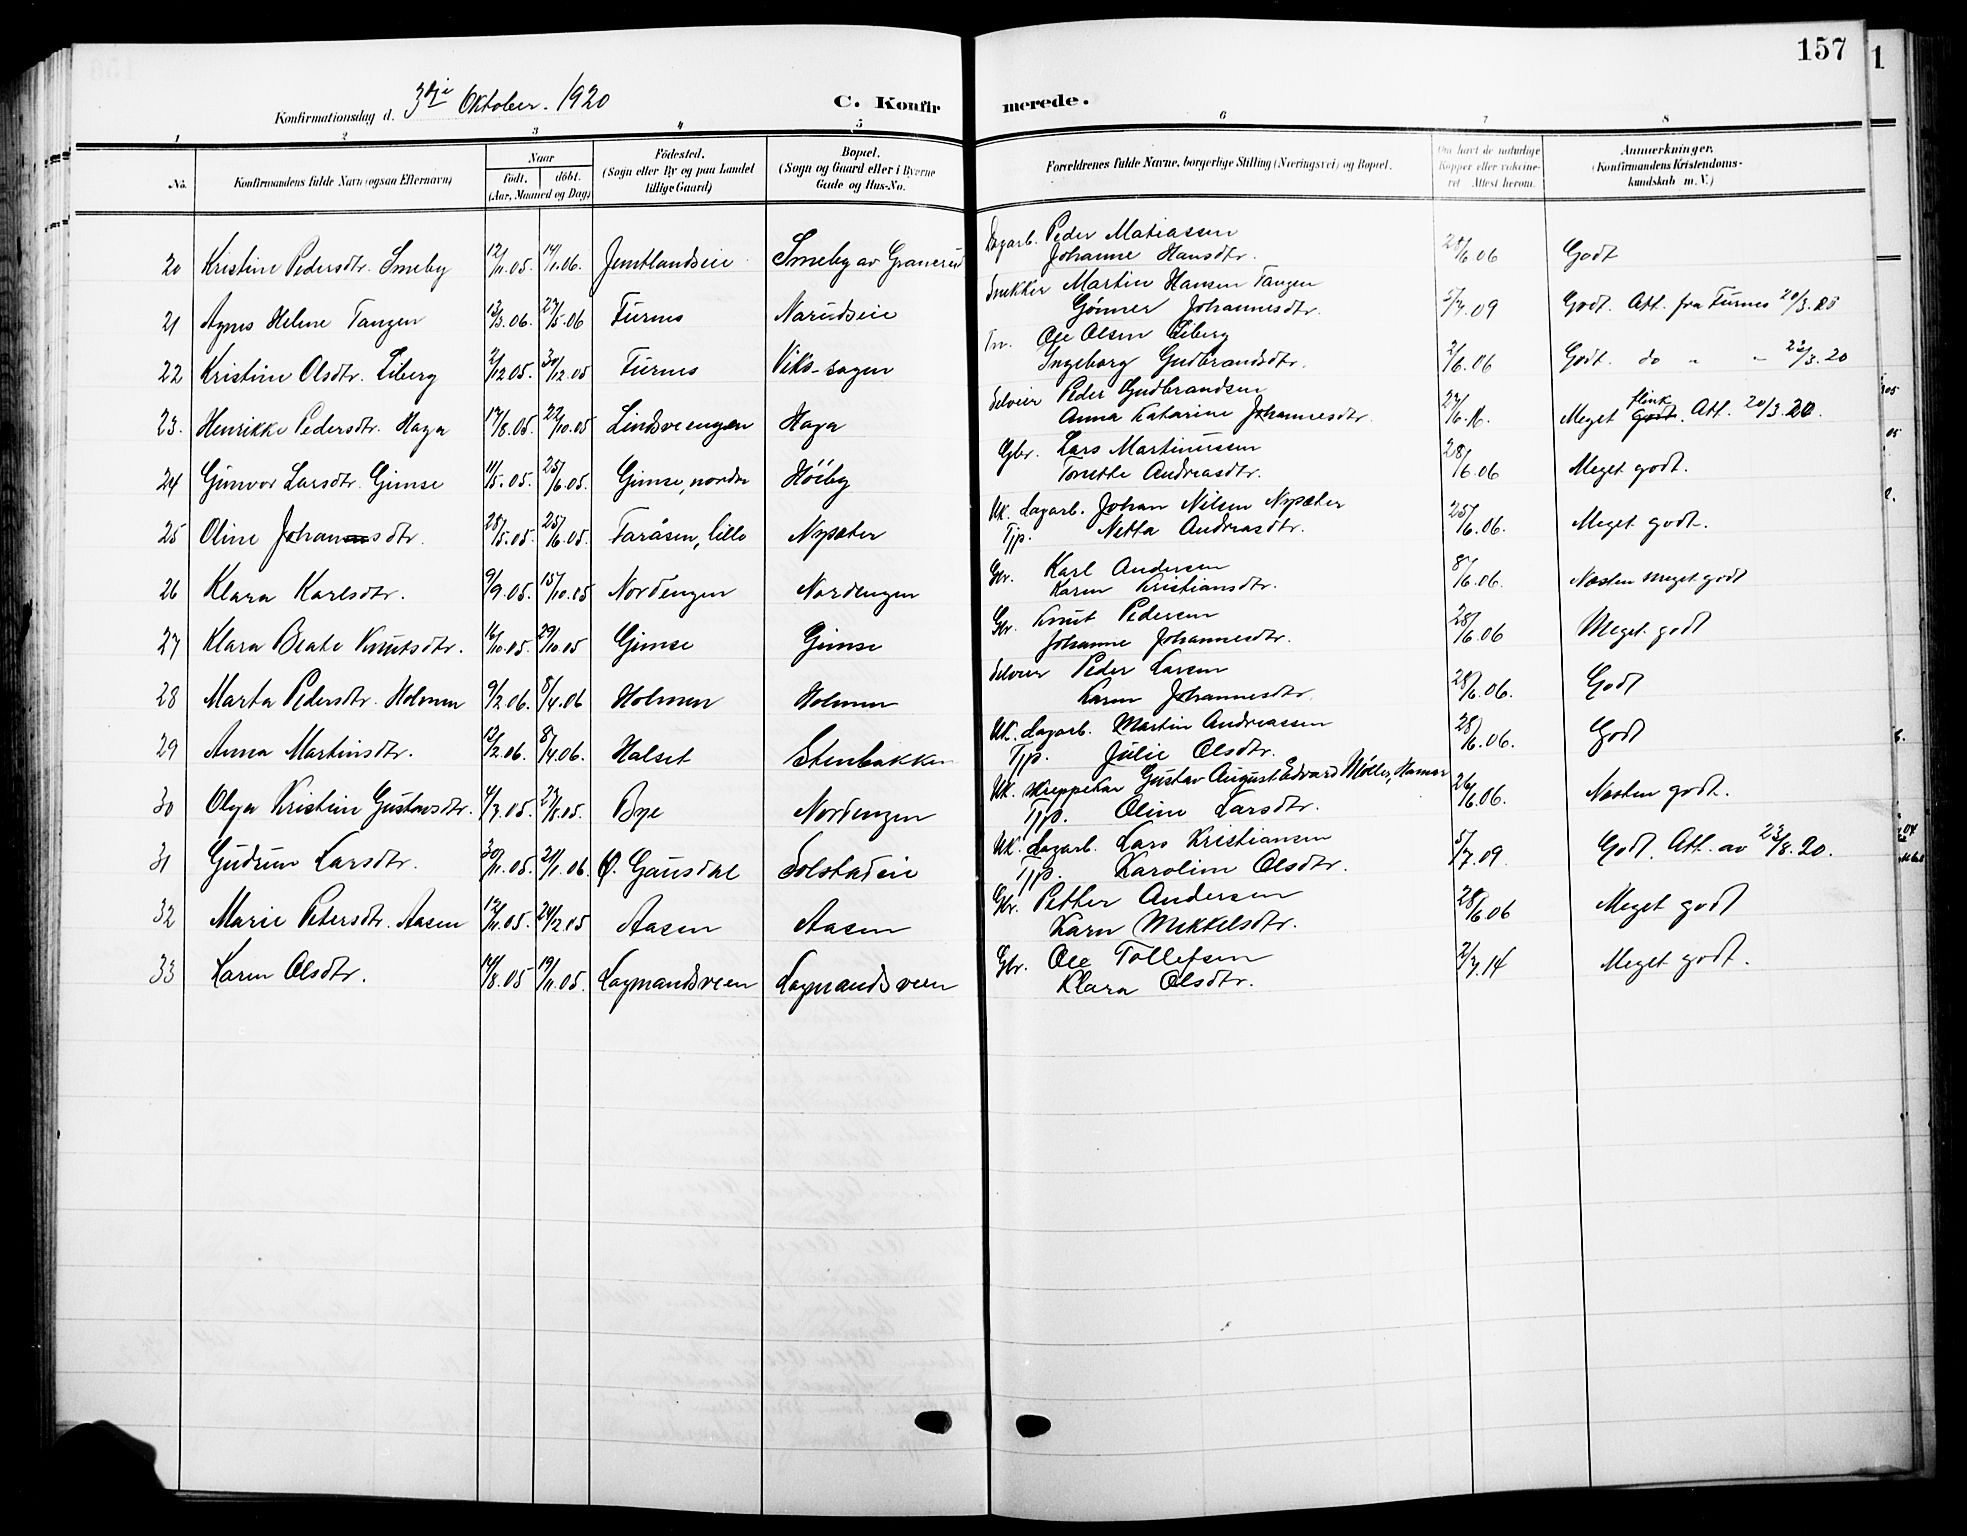 157
1
Konfirmationsdag d. 3dje Oktober. 1920
C. Konfirmerede.
1 2 3 4 5 6 7 8
No.
Konfirmandens fulde Navn (ogsaa Efternavn)
Naar
født, døbt.
(Aar, Maaned og Dag)
Födested.
(Sogn eller By og paa Landet
tillige Gaard)
Bopæl.
(Sogn og Gaard eller i Byerne
Gade og Hus-No.
Forældrenes fulde Navne, borgerlige Stilling (Næringsvei) og Bopæl.
Om havt de naturlige
Kopper eller vakcineret
Attest herom.
Anmerkninger.
(Konfirmandens Kristendomskundskab
m. V.)
20 Kristine Pedersdtr. Smeby 12/11.05. 14/1.06. Jemtlandseie Smeby av Granerud Dagarb. Peder Matiassen
Johanne Hansdtr. 28/6 06 Godt
21 Agnes Helene Tangen 13/3.06. 27/5.06 Furnes Narudseie Snekker Martin Hansen Tangen
Gønner Johannesdtr. 5/7.09 Godt. Att. fra Furnes 20/3.20
22 Kristine Olsdtr. Liberg 2/12 05. 30/12.05 Furnes Viks-sagen Tv. Ole Olsen Liberg
Ingeborg Gudbrandsdtr. 2/6.06 Godt. do " " 22/3.20
23. Henrikke Pedersdtr. Haga 17/8.05. 22/10.05 Lindsveengen Haga Selveier Peder Gudbrandsen
Anna Katarine Johannesdtr. 27/6. Meget flink godt. Att. 20/3.20.
24 Gunvor Larsdtr. Gimse 11/5.05. 25/6.05. Gimse, nordre Høiby Gbr. Lars Martinussen
Tonette Andreasdtr. 28/6.06 Meget godt.
25 Oline Johannsdtr. 28/5.05. 25/6.05. Taråsen, lille Nysæter Uk. Dagarb. Johan Nilsen Nysæter
Tjp. Netta Andreasdtr. 25/6.06. Meget godt.
26 Klara Karlsdtr. 9/9.05. 15/10.05 Nordengen Nordengen Gbr. Karl Andersen
Karen Kristiansdtr. 8/6.06. Næsten meget godt
27 Klara Beate Knutsdtr. 16/10.05. 29/10.05 Gimse Gimse Gbr. Knut Pedersen
Johanne Johannesdtr. 28/6.06 Meget godt
28 Marta Pedersdtr. Holmen 9/2.06. 8/4.06 Holmen Holmen Selveier Peder Larsen
Karen Johannesdtr. 28/6.06. Godt
29 Anna Martinsdtr. 12/2.06. 8/4.06. Halset Stenbakken Uk. Dagarb. Martin Andreassen
Tjp. Julie Olsdtr. 28/6.06. Godt
30 Olga Kristine Gustavsdtr. 4/7.05. 27/8.05. Bye Nordengen Uk. Gustav August Edvard Møller, Hamar
Tjp. Oline Larsdtr. 26/6.06. Næsten godt.
31 Gudrun Larsdtr. 30/11.05. 21/1.06 Ø. Gausdal Solstadeie Uk. Dagarb. Lars Kristiansen
Tjp. Karoline Olsdtr. 5/7.09. Godt. Att. av 23/8.20.
32 Marie Petersdtr. Aasen 12/11.05. 24/12.05 Aasen Aasen Gbr. Petter Andersen
Karen Mikkelsdtr. 28/6.06 Meget godt
33 Karen Olsdtr. 14/8.05 19/11.05. Lagmandsveen Lagmandsveen Gbr. Ole Tollefsen
Klara Olsdtr. 2/7.14 Meget godt.